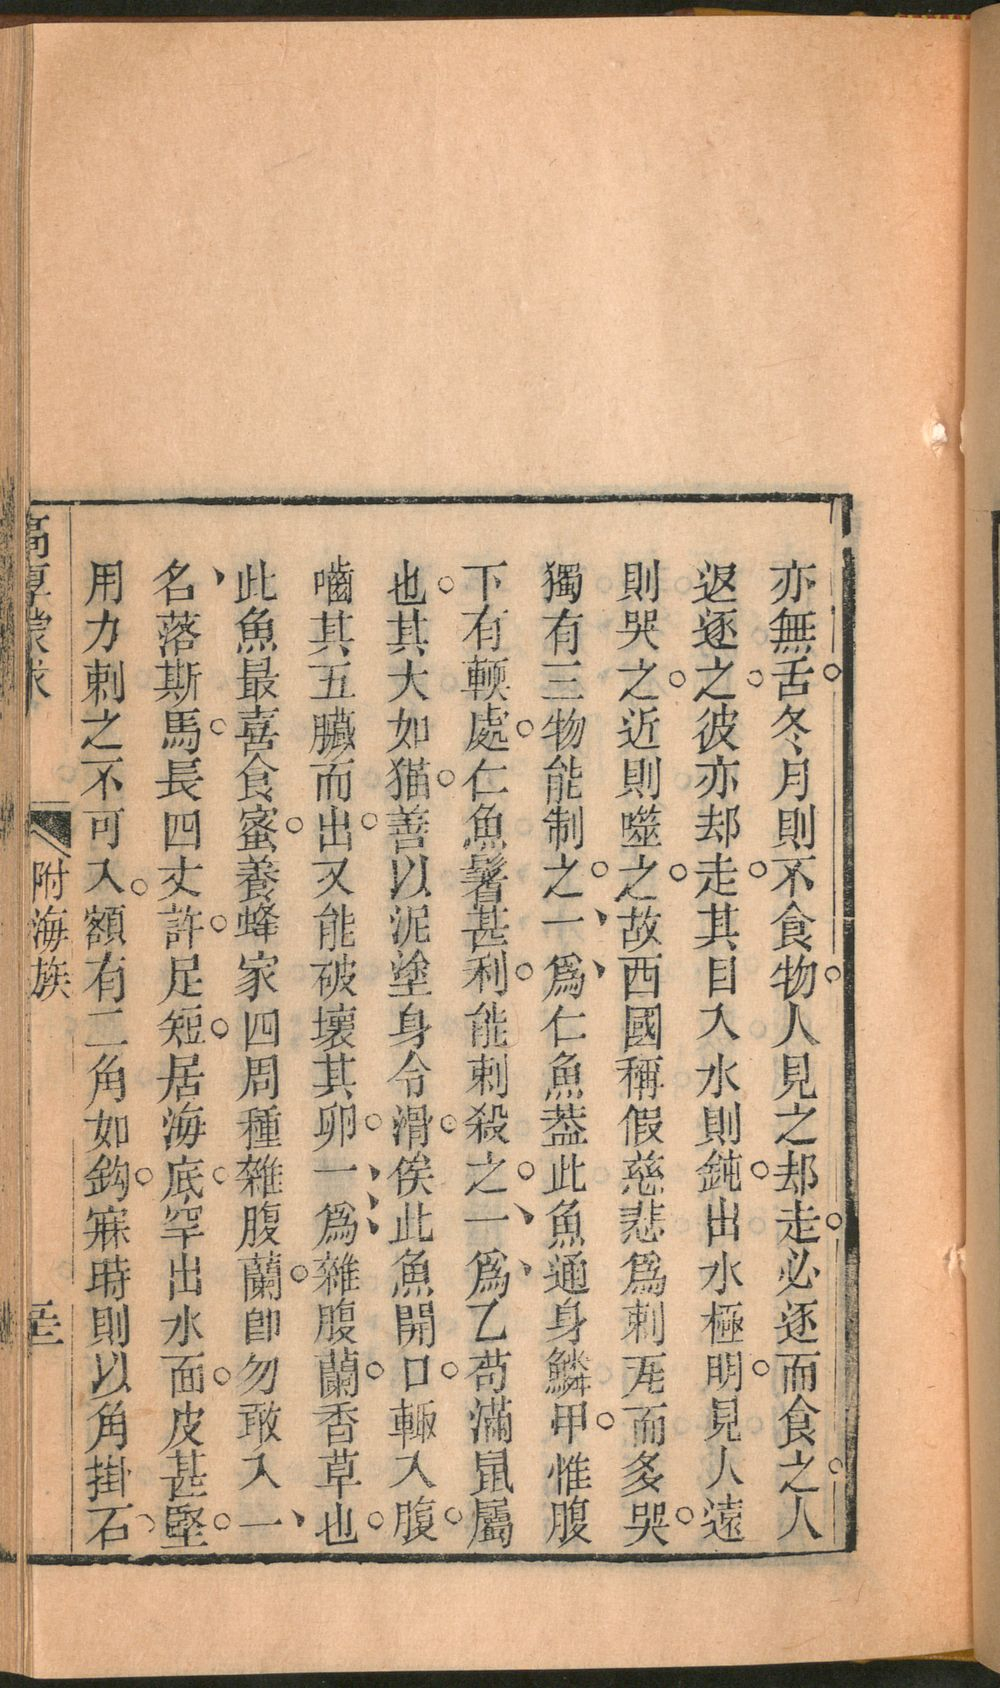 亦無舌冬月則不食物人見之却走必逐而食之人
返逐之彼亦却走其目入水則鈍出水極明見人遠
則哭之近則噬之故西國稱假慈悲爲剌瓦而多哭
獨有三物能制之一爲仁魚葢此魚通身鱗甲惟腹
下有輭處仁魚鬐甚利能剌殺之一爲乙苟滿鼠屬
也其大如猫善以泥塗身令滑俟此魚開口輙入腹
嚙其五臟而出又能破壞其卵一爲雜腹蘭香草也
此魚最喜食蜜養蜂家四周種雜腹蘭卽勿敢入一
名落斯馬長四丈許足短居海底罕出水面皮甚堅
用力剌之不可入額有二角如鈎寐時則以角掛石
高厚蒙求
附海族